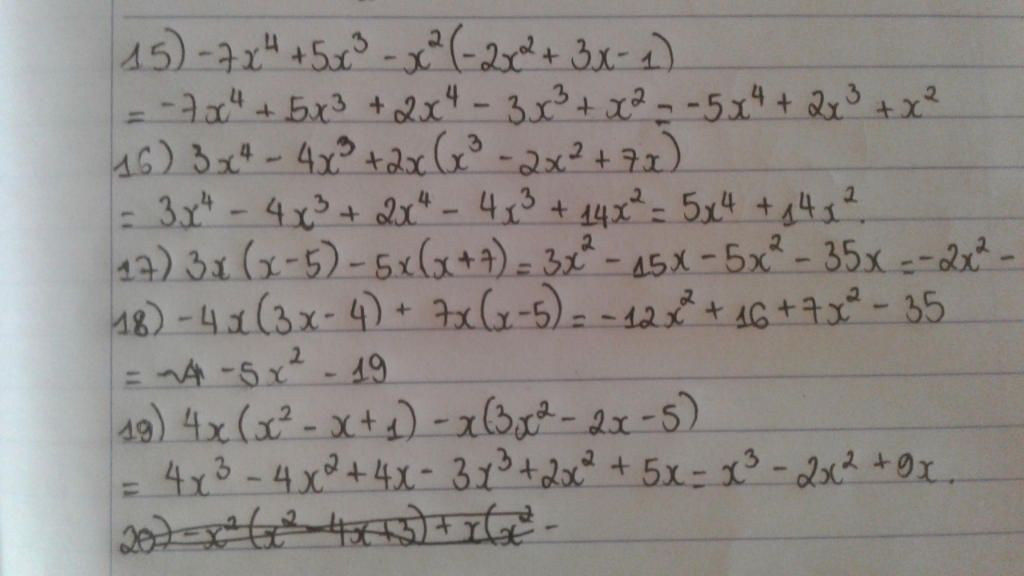 15) -7x⁴ + 5x³ - x²(-2x² + 3x - 1)
= -7x⁴ + 5x³ + 2x⁴ - 3x³ + x² = -5x⁴ + 2x³ + x²
16) 3x⁴ - 4x³ + 2x(x³ - 2x² + 7x)
= 3x⁴ - 4x³ + 2x⁴ - 4x³ + 14x² = 5x⁴ + 14x².
17) 3x(x-5) - 5x(x+7) = 3x² - 15x - 5x² - 35x = -2x² -
18) -4x(3x - 4) + 7x(x-5) = -12x² + 16 + 7x² - 35
= -5x² - 19
19) 4x(x² - x + 1) - x(3x² - 2x - 5)
= 4x³ - 4x² + 4x - 3x³ + 2x² + 5x = x³ - 2x² + 9x.
20) -x²(x² - 4x + 3) + x(x² -